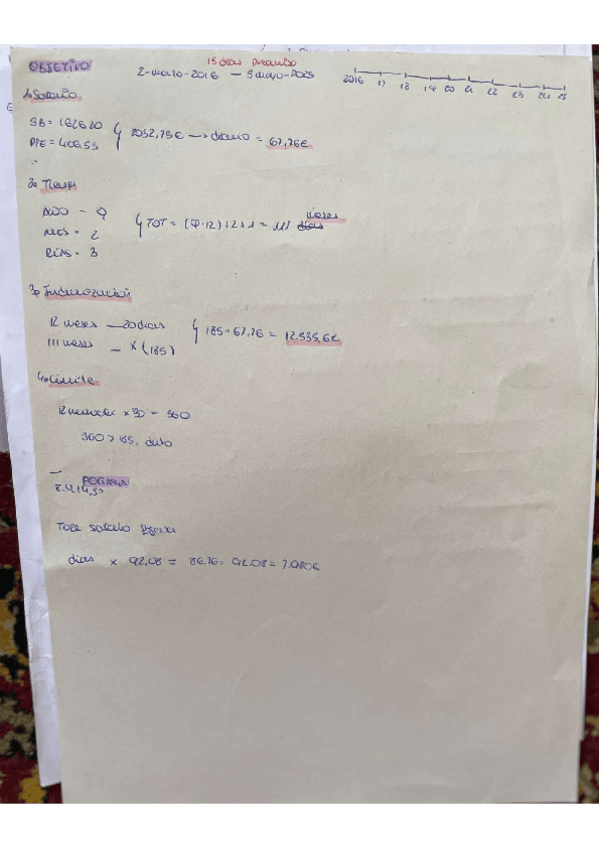 OBJETIVO
15 días preaviso
2-marzo-2016 — 5 mayo-2025
2016 17 18 19 20 21 22 23 24 25
1o Salario
SB = 1626.20
PPE = 406.55
2032,75€ → diario = 67,76€
2o Tiempo
AÑO - 9
mes - 2
DÍAS - 3
TOT = (9·12)+2+1 = 111 días
meses
3o Indemnización
12 meses — 20 días
111 meses — x (185)
185 · 67.76 = 12.535,6€
4o Límite
12 mensual x 30 = 360
360 > 185, 
FOGASA
Tope salario
días x 92,08 = 86.76 · 92,08 = 7.980€